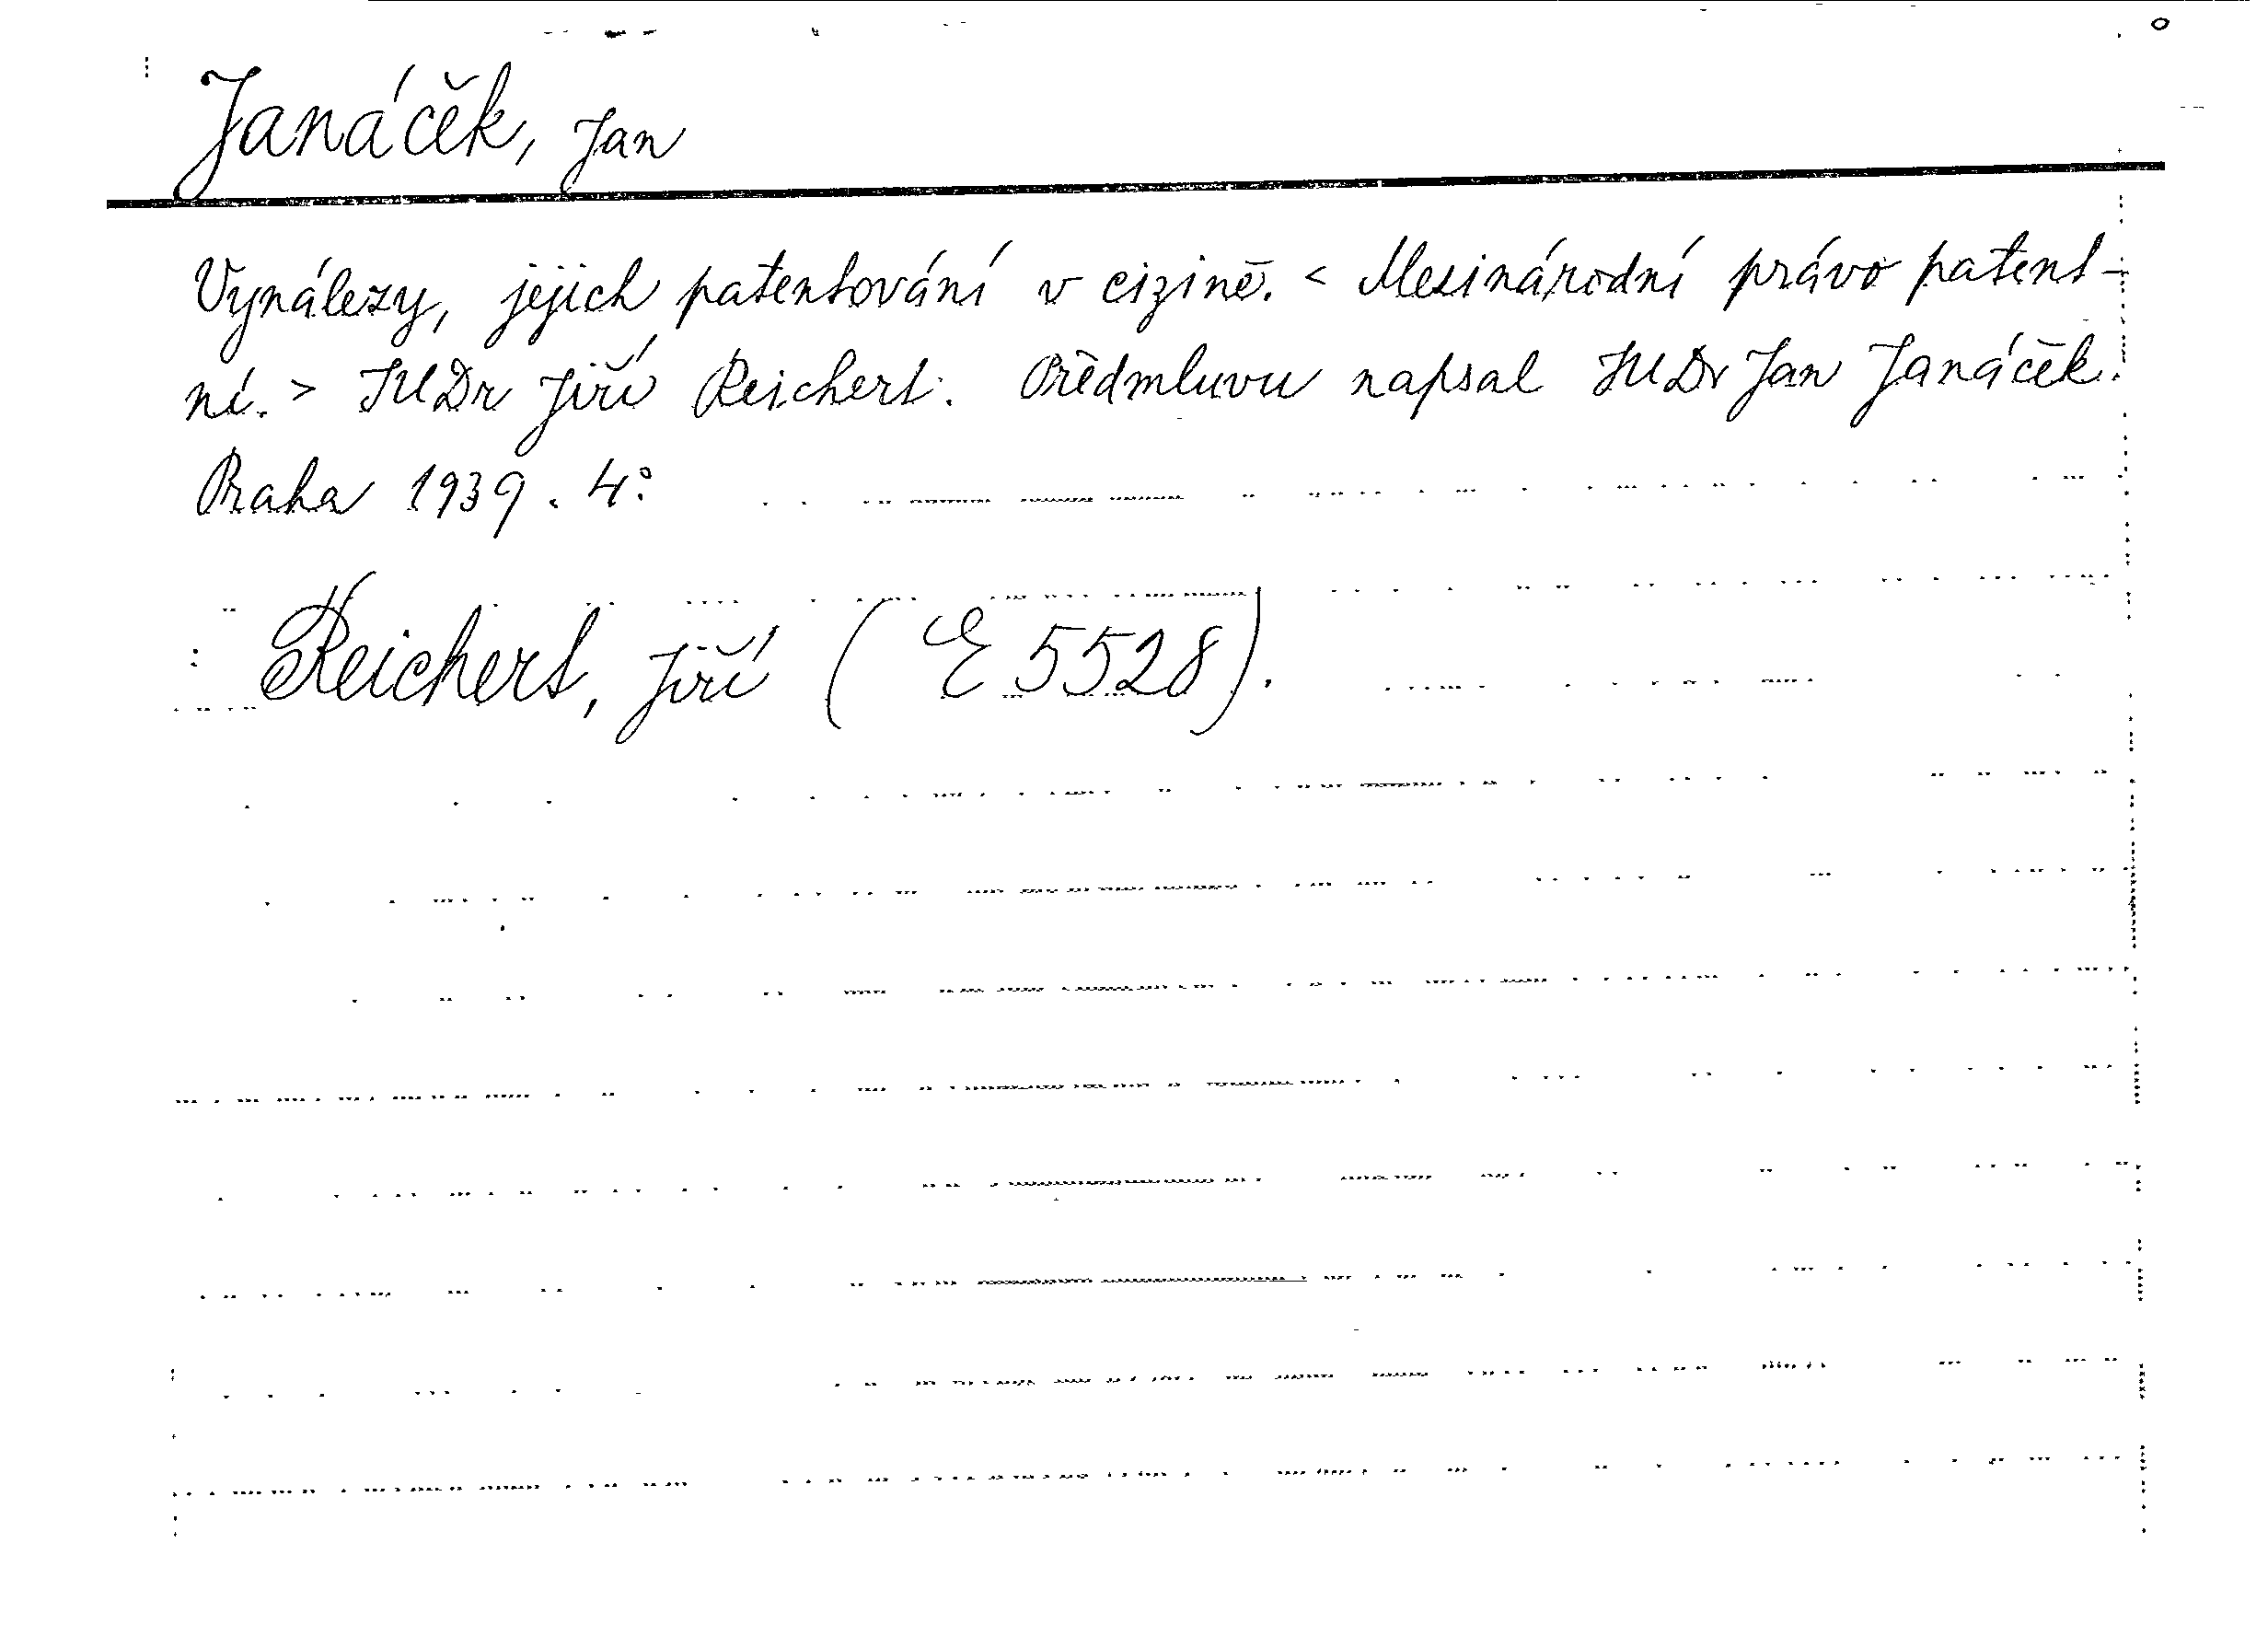 Janáček, Jan
Vynálezy, jejich patentování v cizině. < Mezinárodní právo patent-
ní. > JUDr Jiří Reichert. Předmluvu napsal JUDr Jan Janáček.
Praha 1939. 4°.
Reichert, Jiří (E 5528).